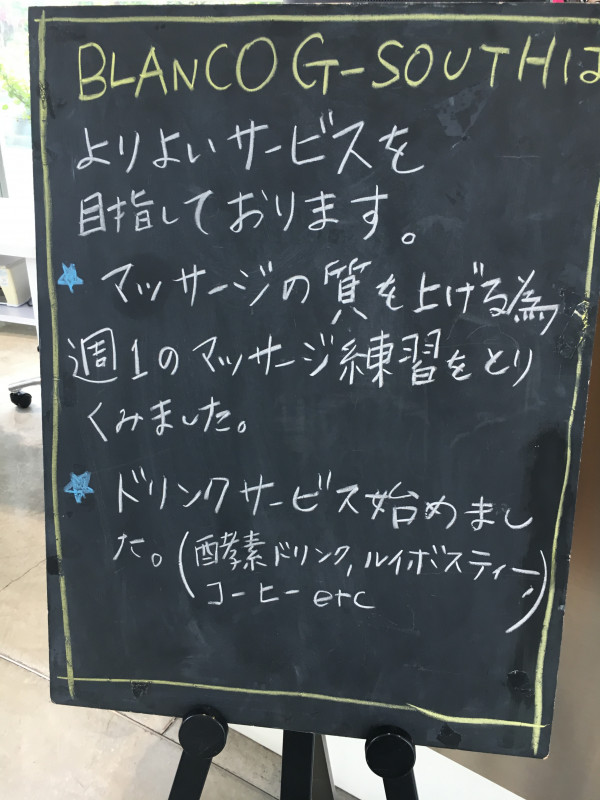 BLANCO G-SOUTHは
よりよいサービスを
目指しております。
マッサージの質を上げる為、
週1のマッサージ練習をとり
くみました。
ドリンクサービス始めまし
た。(酵素ドリンク,ルイボスティー,
コーヒー etc)